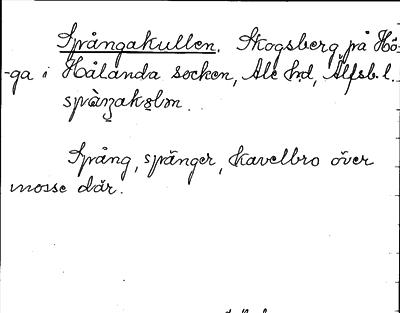 Spångakullen. Skogsberg på Hö-
-ga i Hålanda socken, Ale hd, Älfsb. l.

Spång, spänger, kavelbro över
mosse där.